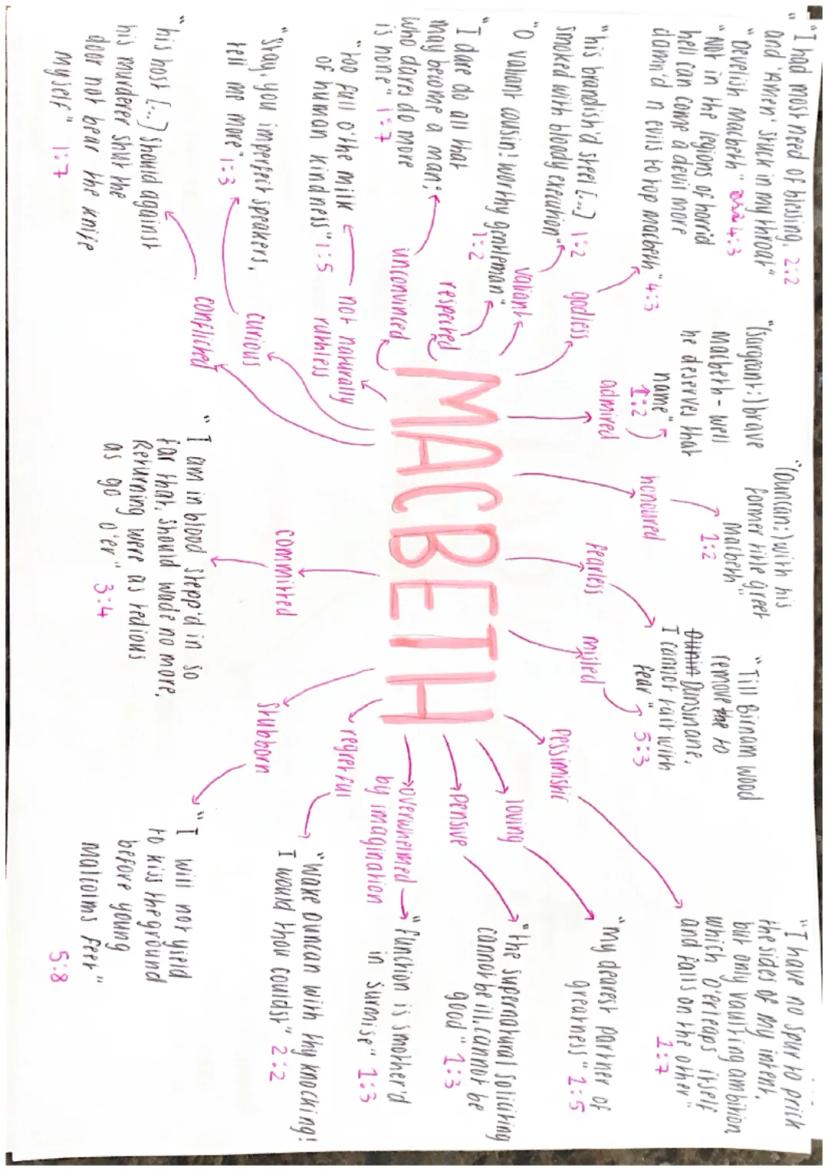 "I had most need of blessing, 2:2
and 'Amen' stuck in my throat"
"Devilish Macbeth" 4:3
"Not in the legions of horrid
hell can come a devil more
damn'd n evils to top macbeth" 4:3
godless
"his brandish'd steel [...] 1:2
smoked with bloody execution"
valiant
"O valiant cousin! worthy gentleman"
1:2
respected
"I dare do all that
may become a man;
who dares do more
is none" 1:7
unconvinced
"too full o'the milk
of human kindness" 1:5
not naturally
ruthless
"Stay, you imperfect speakers,
tell me more" 1:3
curious
"his host [...] should against
his murderer shut the
door not bear the knife
myself" 1:7
conflicted
MACBETH
"(Sargeant:) brave
macbeth - well
he deserves that
name"
1:2
admired
"(Duncan:) with his
former title greet
Macbeth"
1:2
honoured
fearless
misled
"Till Birnam wood
remove the to
Dunsinane,
I cannot taint with
fear"
5:3
pessimistic
"I have no spur to prick
the sides of my intent,
but only vaulting ambition,
which O'erleaps itself
and falls on the other"
1:7
loving
"my dearest partner of
greatness" 1:5
pensive
"the supernatural soliciting
cannot be ill, cannot be
good" 1:3
overwhelmed
by imagination
"function is smother'd
in surmise" 1:3
regretful
"Wake Duncan with thy knocking!
I would thou couldst" 2:2
stubborn
"I will not yield
to kiss the ground
before young
Malcolms feet"
5:8
committed
"I am in blood stepp'd in so
far that, should wade no more,
Returning were as tedious
as go o'er" 3:4